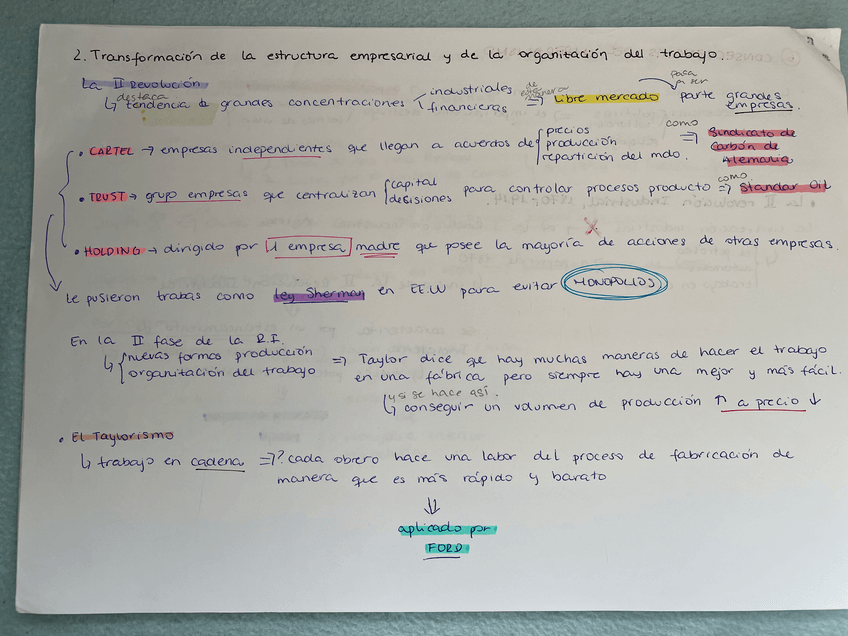 2. Transformación de la estructura empresarial y de la organitación del trabajo.
La II Revolución
destaca
↳ tendencia a grandes concentraciones { industriales financieras ⇒ Libre mercado para a ser parte grandes empresas.
• CARTEL → empresas independientes que llegan a acuerdos de { precios producción repartición del mdo. como ⇒ Sindicato de Carbón de Alemania
• TRUST → grupo empresas que centralizan { capital desisiones para controlar procesos producto como ⇒ Standar Oil
• HOLDING → dirigido por 1 empresa madre que posee la mayoría de acciones de otras empresas.
Le pusieron trabas como Ley Sherman en EE.UU para evitar MONOPOLIOS
En la II fase de la R.I.
↳ { nuevas formas producción organitación del trabajo ⇒ Taylor dice que hay muchas maneras de hacer el trabajo
en una fábrica pero siempre hay una mejor y más fácil.
y si se hace así.
↳ conseguir un volumen de producción ↑ a precio ↓
• El Taylorismo
↳ trabajo en cadena ⇒ ? cada obrero hace una labor del proceso de fabricación de
manera que es más rápido y barato
⇓
aplicado por
FORD